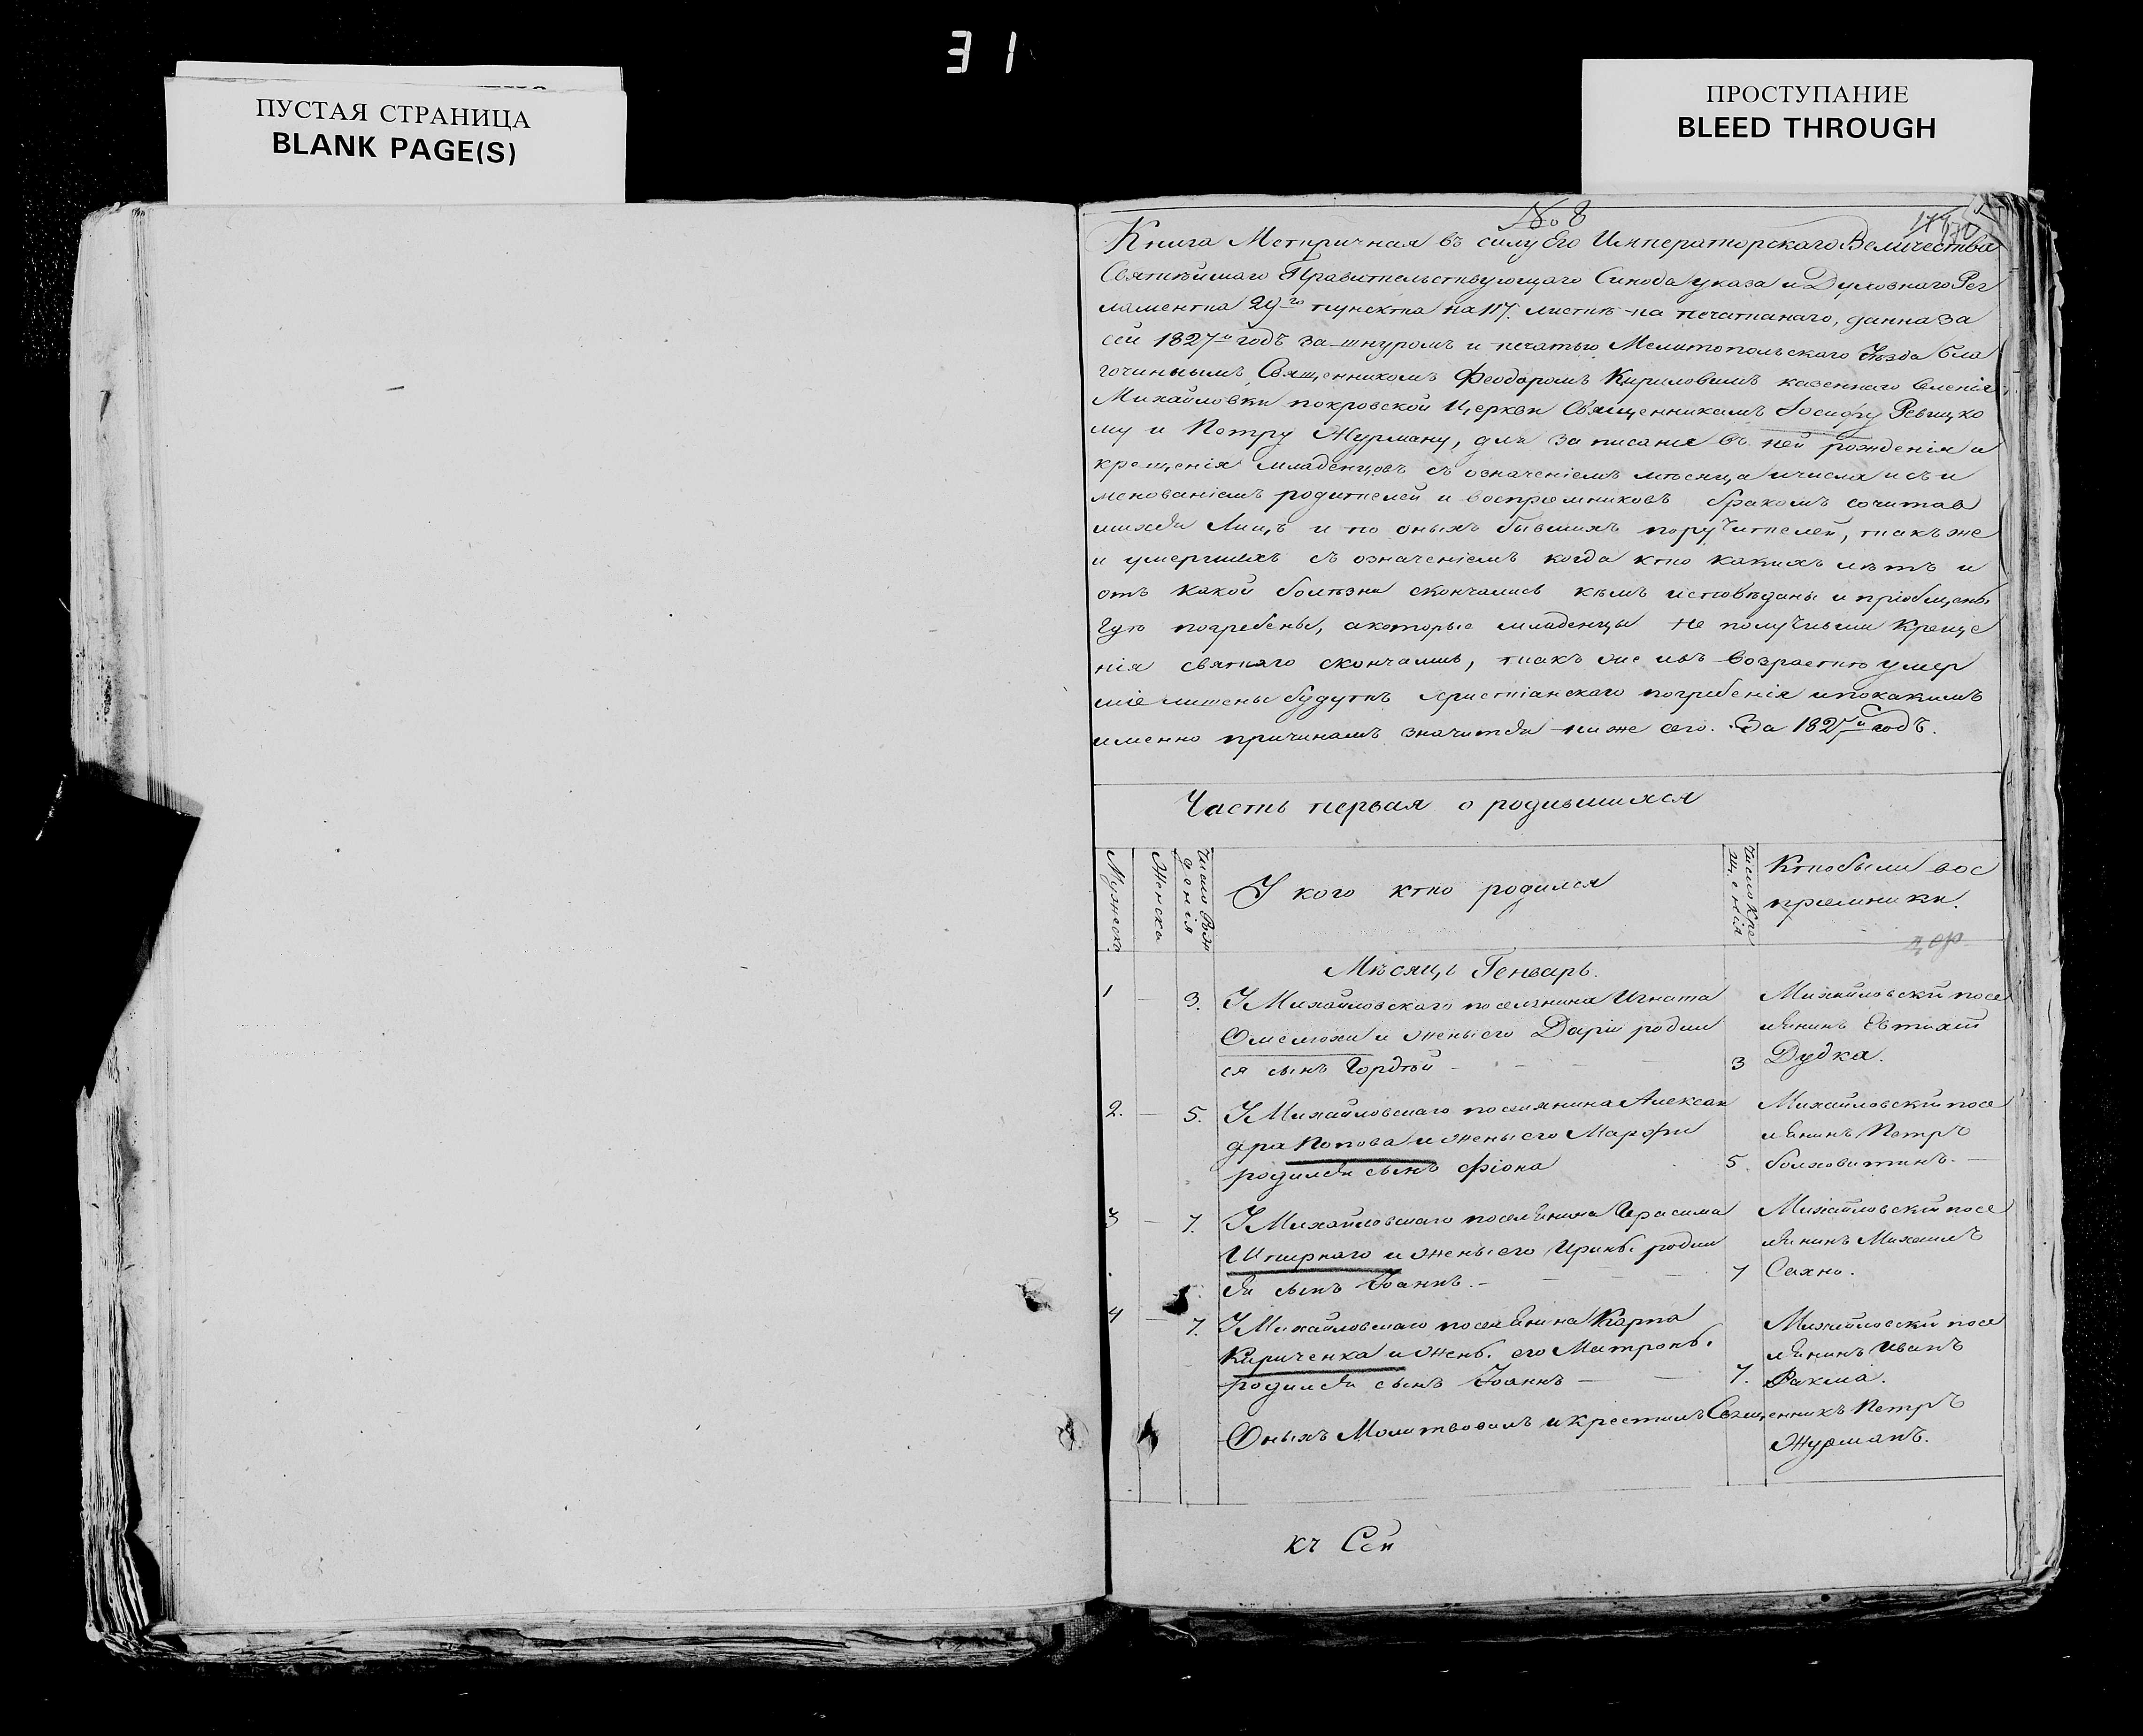 31
ПУСТАЯ СТРАНИЦА
BLANK PAGE(S)
ПРОСТУПАНИЕ
BLEED THROUGH
№ 8
Книга Метиричная въ силу Его Императорскаго Величества
Святѣишаго Правительствующаго Синода указа и Духовнаго Рег
ламента 29го пункта на 117. листѣ на печатанаго, данна за
сей 1827й годъ за шнуромъ и печатью Мелитопольскаго Уѣзда бла
гочинымъ Священникомъ Феодоромъ Кириловымъ казеннаго Селенія
Михайловки покровской Церкви Священникамъ Іосифу Ревицко
му и Петру Журману, для записанія въ ней рожденія и
крещенія младенцовъ съ означеніемъ мѣсяца и числа и съ и
менованіемъ родителей и воспрiемниковъ бракомъ сочитав
шихся Лицъ и по оныхъ бывшихъ поручителей, такъ же
и умершихъ съ означеніемъ когда кто какихъ лѣтъ и
отъ какой болѣзни скончались кѣмъ исповѣданы и пріобщены
Гдѣ погребены, а которые младенцы не получивши Креще
нія святаго скончались, такъ же изъ возрастнго умер
шіе лишены будутъ христіанскаго погребенія и по какимъ
именно причинамъ значится ниже сего. За 1827й годъ.
Часть первая о родившихся
Мужеска
Женска
Число Рож
денія
У кого кто родился
Число Кре
щенія
Кто были вос
прiемники.
Мѣсяцъ Генварь.
1 — 3. У Михайловскаго поселянина Игната Михайловскій посе
Омелюхи и жены его Даріи родил лянинъ Евтихій
ся сынъ Гордѣй - - - - 3 Дудка.
2. — 5. У Михайловскаго поселянина Алексан Михайловскій посе
дра Попова и жены его Марфы лянинъ Петръ
родился сынъ Фіона 5. болховитинъ. —
3 — 7. У Михайловскаго поселянина Герасима Михайловскій посе
Штирнаго и жены его Ирины родил лянинъ Михаилъ
ся сынъ Іоаннъ. - - - - 7 Сахно.
4 — 7. У Михайловскаго поселянина Карпа Михайловскій посе
Кириченка и жены его Матроны. лянинъ Иванъ
родился сынъ Іоаннъ — — 7. Ракша.
Оныхъ Молитвовалъ и крестилъ Священникъ Петръ
Журманъ.
къ Сей